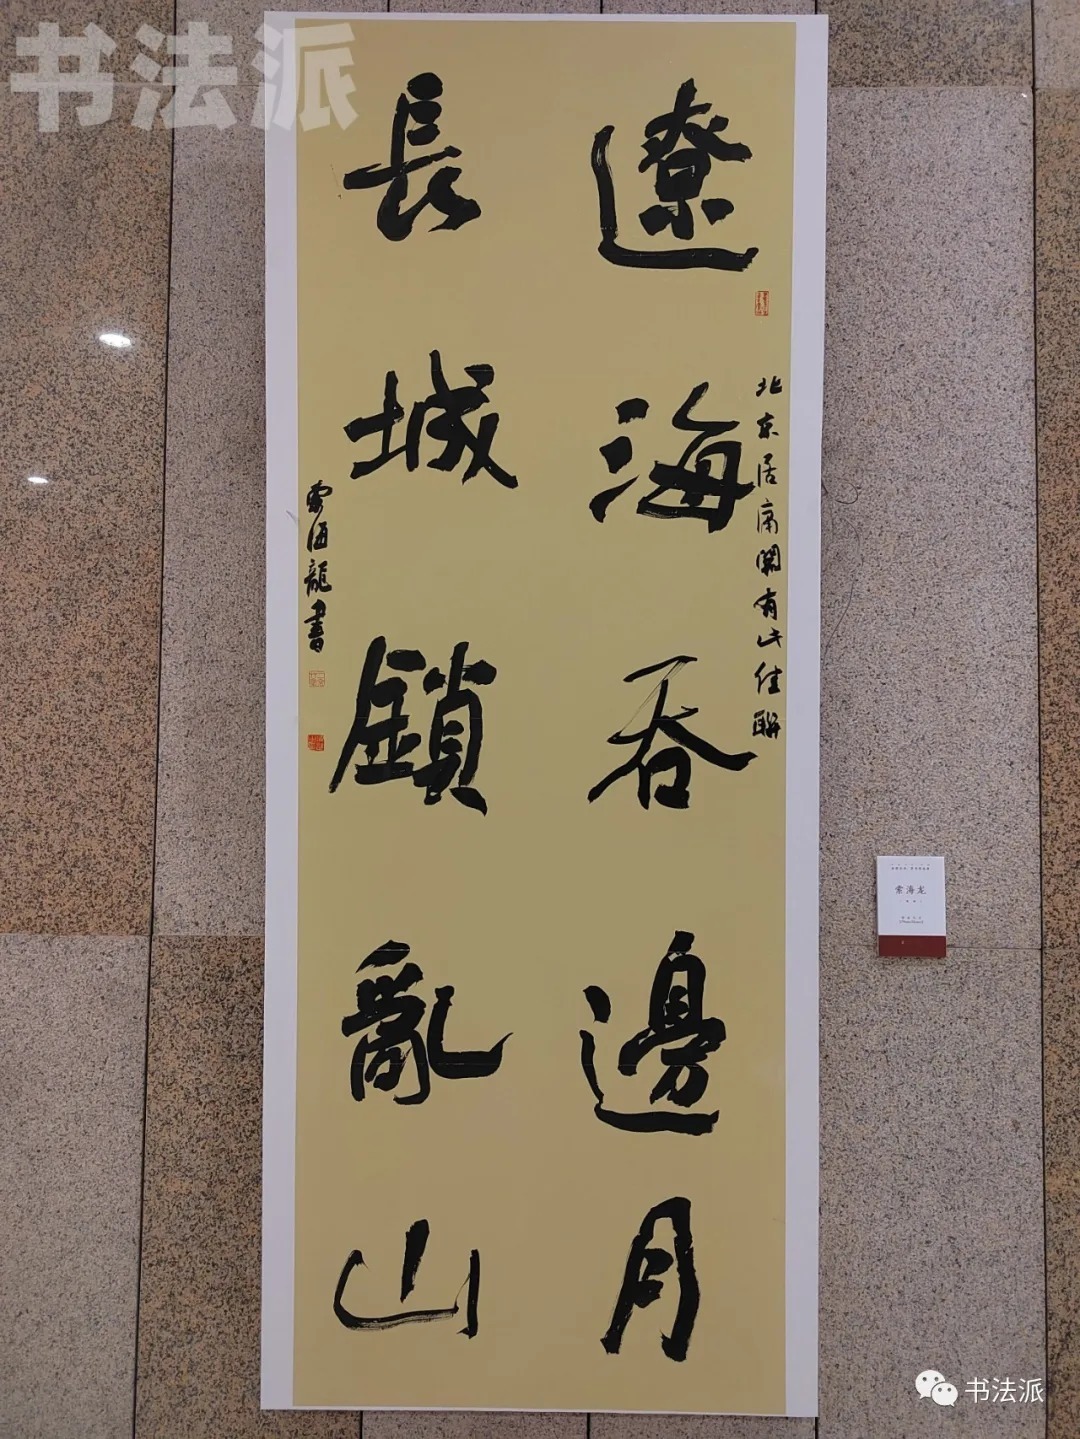 书法派
遼海吞邊月
北京居庸關有此佳聯
長城鎖亂山
索海龍書
索海龙
书法派